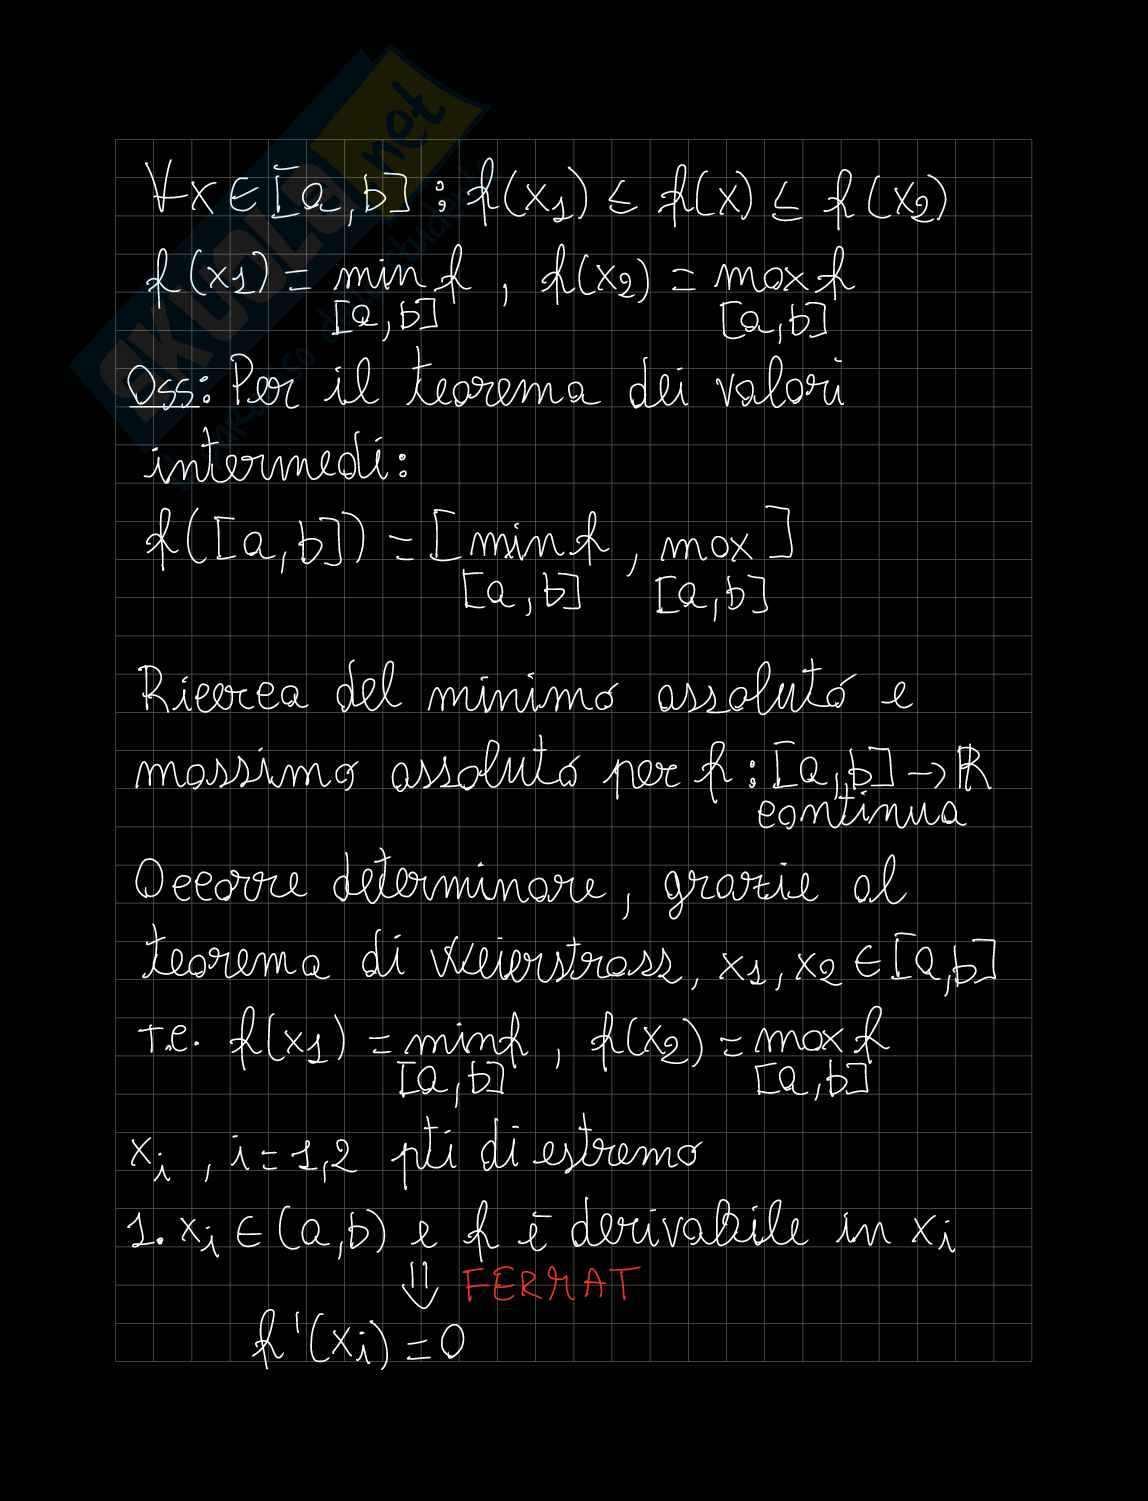 ∀x∈[a,b] : f(x1) ≤ f(x) ≤ f(x2)
f(x1) = min f , f(x2) = max f
[a,b] [a,b]
Oss: Per il teorema dei valori
intermedi:
f([a,b]) = [min f , max ]
[a,b] [a,b]
Ricerca del minimo assoluto e
massimo assoluto per f : [a,b] → ℝ
continua
Occorre determinare, grazie al
teorema di Weierstrass, x1, x2 ∈ [a,b]
T.c. f(x1) = min f , f(x2) = max f
[a,b] [a,b]
xi , i=1,2 pti di estremo
1. xi ∈ (a,b) e f è derivabile in xi
⇓ FERMAT
f'(xi) = 0
SKUOLA.net